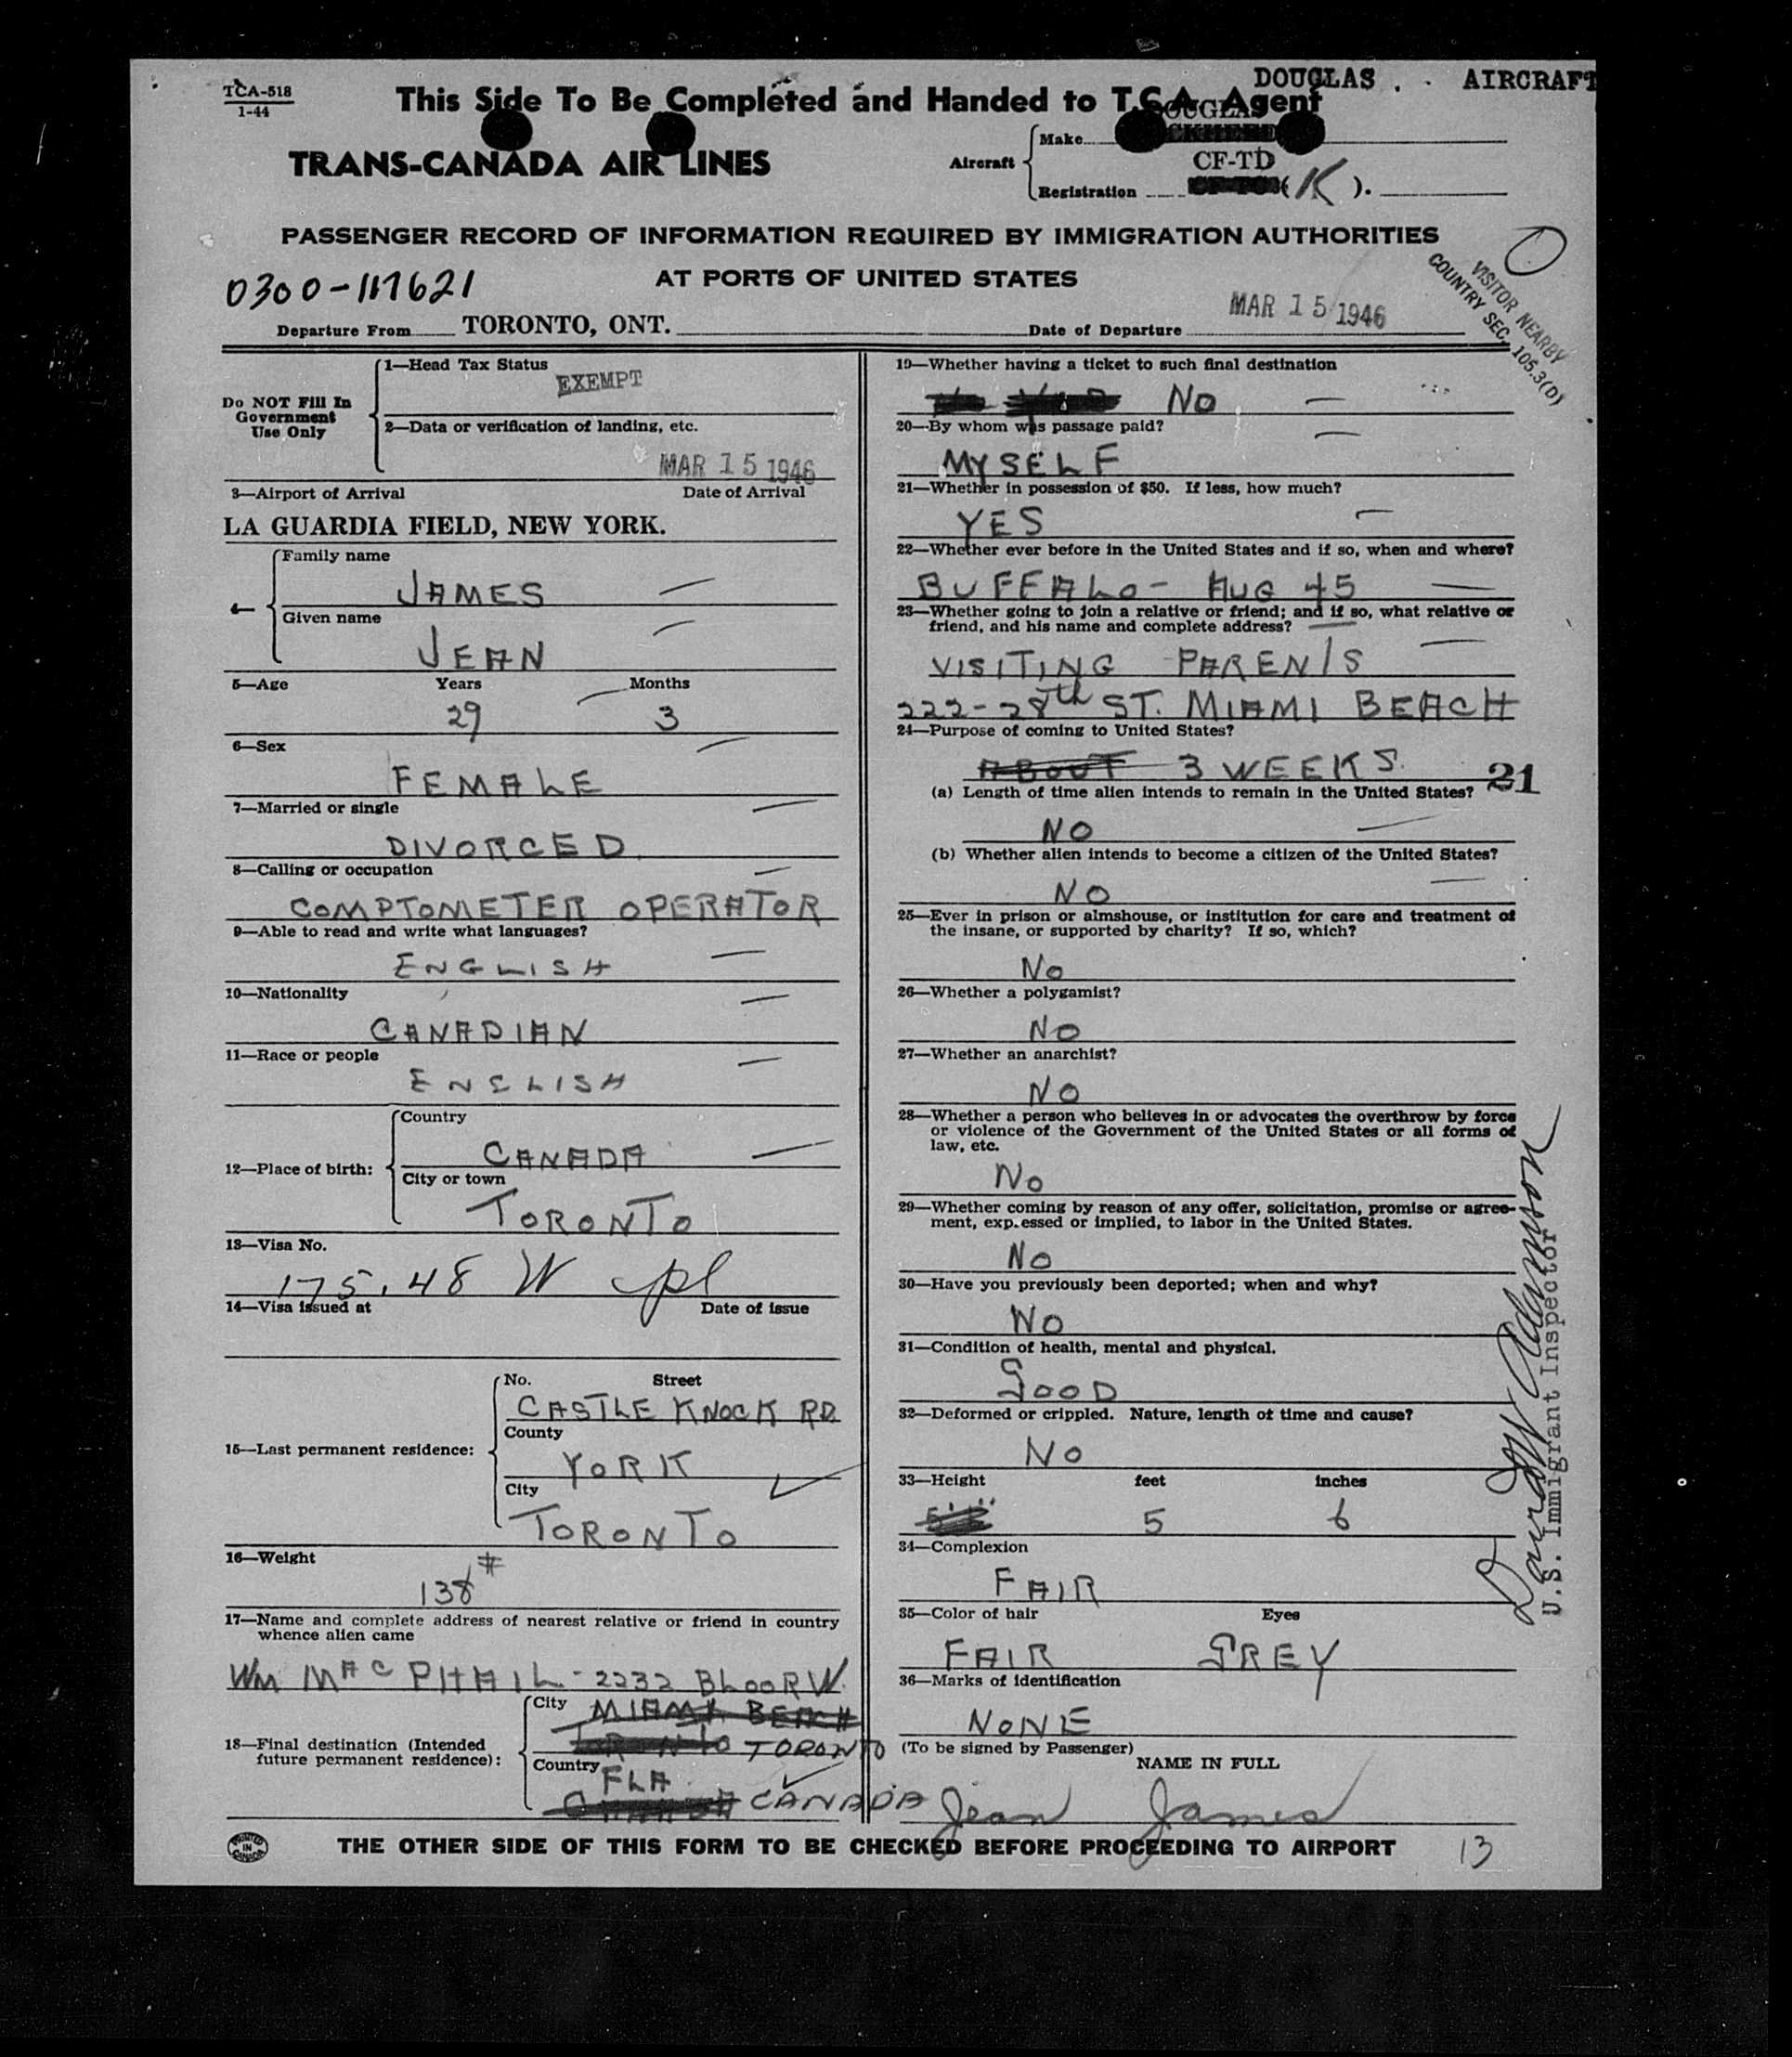 DOUGLAS . . AIRCRAFT
TCA-518
1-44
This Side To Be Completed and Handed to T.C.A. Agent
TRANS-CANADA AIR LINES
Aircraft
Make
DOUGLAS
Registration
CF-TD
(K).
PASSENGER RECORD OF INFORMATION REQUIRED BY IMMIGRATION AUTHORITIES
AT PORTS OF UNITED STATES
0300-117621
VISITOR NEARBY
COUNTRY SEC. 105.3(D)
Departure From TORONTO, ONT. Date of Departure MAR 15 1946
Do NOT Fill In
Government
Use Only
1—Head Tax Status
EXEMPT
2—Data or verification of landing, etc.
MAR 15 1946
3—Airport of Arrival Date of Arrival
LA GUARDIA FIELD, NEW YORK.
4—
Family name
JAMES
Given name
JEAN
5—Age Years Months
29 3
6—Sex
FEMALE
7—Married or single
DIVORCED
8—Calling or occupation
COMPTOMETER OPERATOR
9—Able to read and write what languages?
ENGLISH
10—Nationality
CANADIAN
11—Race or people
ENGLISH
12—Place of birth:
Country
CANADA
City or town
TORONTO
13—Visa No.
175.48 W
14—Visa issued at Date of issue
15—Last permanent residence:
No. Street
CASTLE KNOCK RD
County
YORK
City
TORONTO
16—Weight
138#
17—Name and complete address of nearest relative or friend in country
whence alien came
WM MACPHAIL - 2232 BLOOR W.
18—Final destination (Intended
future permanent residence):
City
MIAMI BEACH
TORONTO TORONTO
Country
FLA
CANADA CANADA
19—Whether having a ticket to such final destination
No
20—By whom was passage paid?
MYSELF
21—Whether in possession of $50. If less, how much?
YES
22—Whether ever before in the United States and if so, when and where?
BUFFALO - AUG 45
23—Whether going to join a relative or friend; and if so, what relative or
friend, and his name and complete address?
VISITING PARENTS
222-28th ST. MIAMI BEACH
24—Purpose of coming to United States?
ABOUT 3 WEEKS 21
(a) Length of time alien intends to remain in the United States?
NO
(b) Whether alien intends to become a citizen of the United States?
NO
25—Ever in prison or almshouse, or institution for care and treatment of
the insane, or supported by charity? If so, which?
No
26—Whether a polygamist?
No
27—Whether an anarchist?
No
28—Whether a person who believes in or advocates the overthrow by force
or violence of the Government of the United States or all forms of
law, etc.
No
29—Whether coming by reason of any offer, solicitation, promise or agree-
ment, expressed or implied, to labor in the United States.
No
30—Have you previously been deported; when and why?
No
31—Condition of health, mental and physical.
GOOD
32—Deformed or crippled. Nature, length of time and cause?
No
33—Height feet inches
5 6
34—Complexion
FAIR
35—Color of hair Eyes
FAIR GREY
36—Marks of identification
NONE
(To be signed by Passenger)
NAME IN FULL
Jean James
David W Adamson
U.S. Immigrant Inspector
PRINTED IN CANADA
THE OTHER SIDE OF THIS FORM TO BE CHECKED BEFORE PROCEEDING TO AIRPORT
13